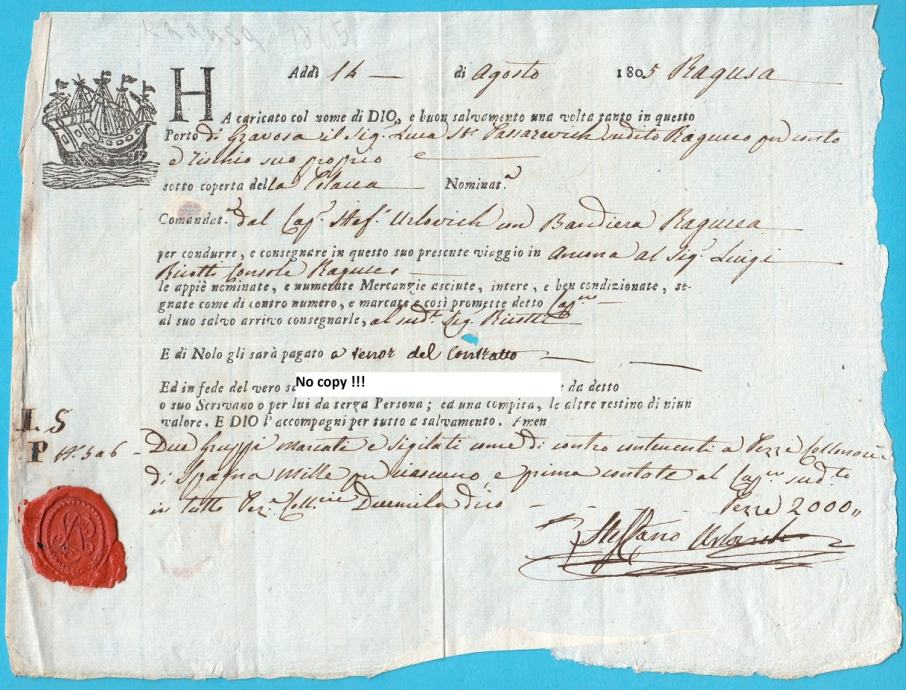 Ragusa 1805
Addì 14 di Agosto 1805 Ragusa
HA caricato col nome di DIO,, e buon salvamento una volta tanto in questo
Porto di Gravosa il Sig. Luca St. Passarevich sudito Raguseo per conto
e rischio suo proprio
sotto coperta della Polacca Nominat.ª
Comandat.ª dal Cap. Stef. Urlovich con Bandiera Ragusea
per condurre, e consegnare in questo suo presente viaggio in Ancona al Sig. Luigi
Console Raguseo
le appiè nominate, e numerate Mercanzie asciute, intere, e ben condizionate, se-
gnate come di contro numero, e marcate e così promette detto Cap.
al suo salvo arrivo consegnarle, al sud.to Sig.
E di Nolo gli sarà pagato a tenor del Contratto
Ed in fede del vero sa
No copy !!!
e da detto
o suo Scrivano o per lui da terza Persona; ed una compita, le altre restino di niun
valore. E DIO l'accompagni per tutto a salvamento. Amen
L. S
P N. 5 a 6 - Due Gruppi marcati e sigilati come di contro contenenti a Pezze
di Spagna Mille per ciascuno, e prima contate al Cap. sud.to
in tutto Pez. Duemila dico - - Pezze 2000,,
Steffano Urlovich